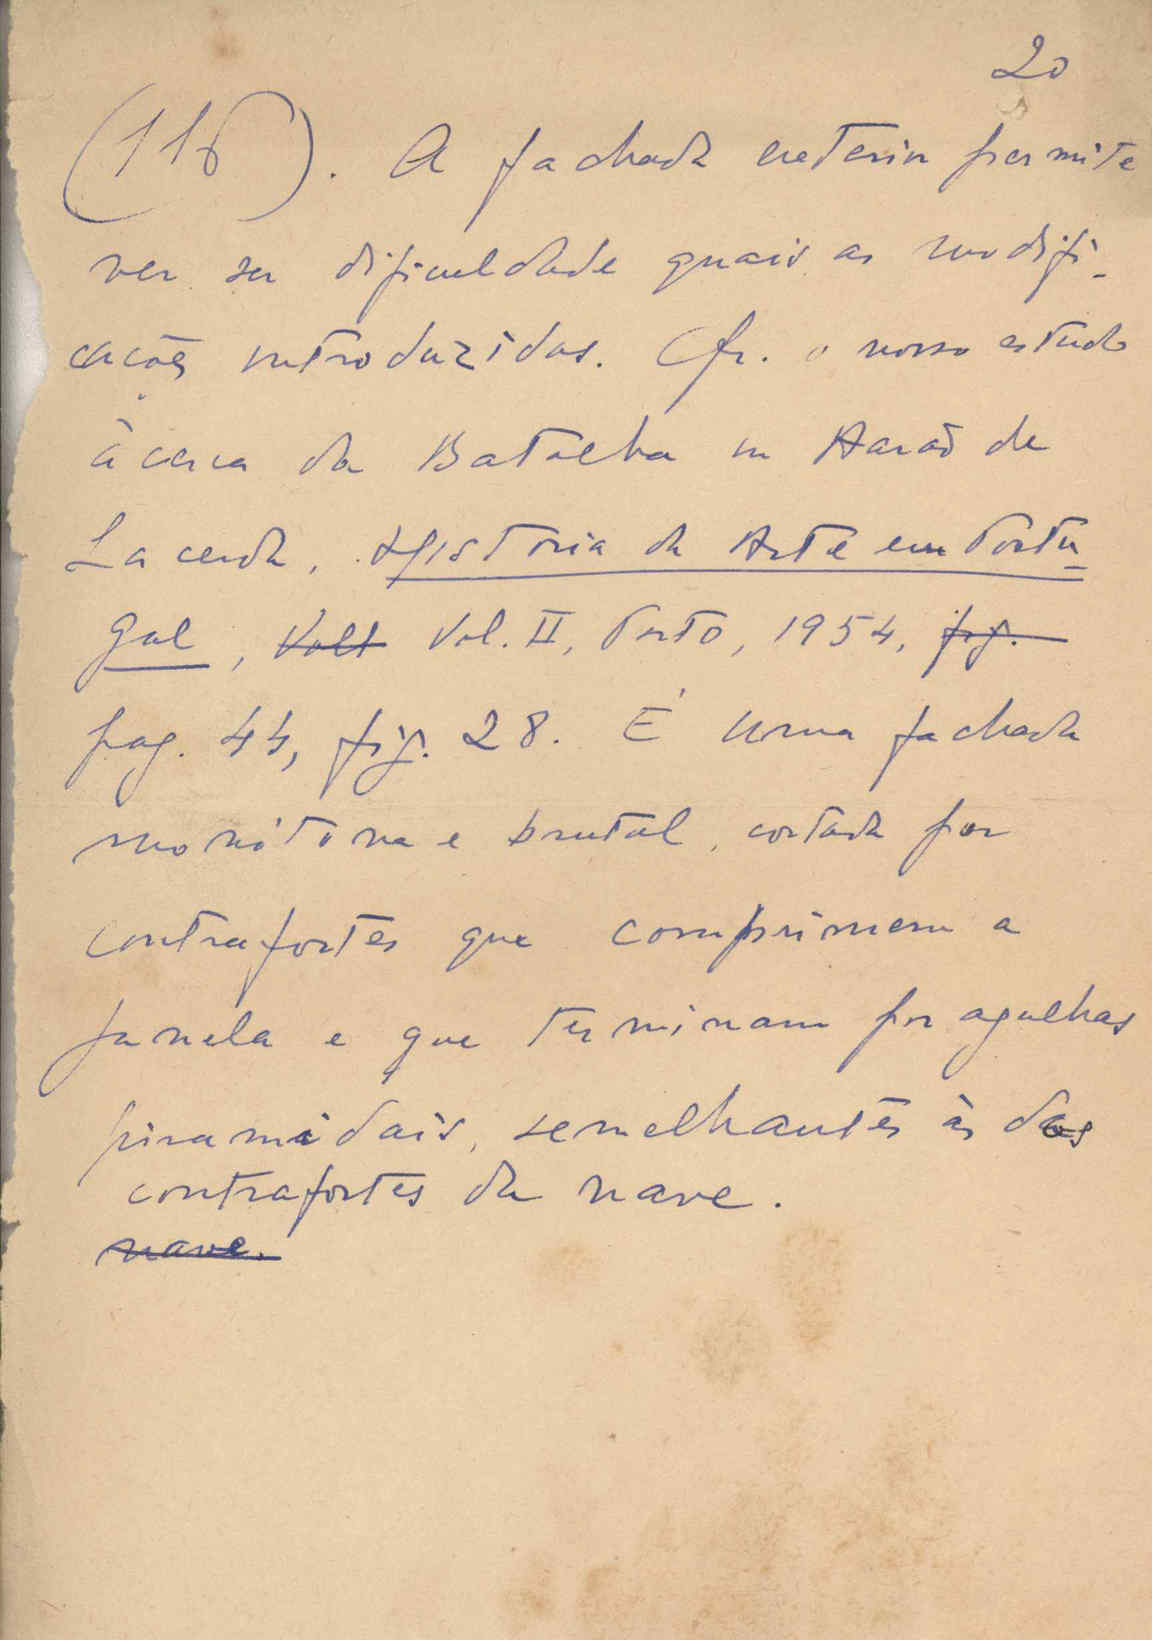 20
(116). A fachada exterior permite
ver sem dificuldade quais as modifi-
cações introduzidas. Cfr. o nosso estudo
àcerca da Batalha in Aarão de
Lacerda, História da Arte em Portu-
gal, Vol. II, Porto, 1954, fig.
pag. 44, fig. 28. É uma fachada
monótona e brutal, cortada por
contrafortes que comprimem a
janela e que terminam por agulhas
piramidais, semelhantes às dos
contrafortes da nave.
nave.